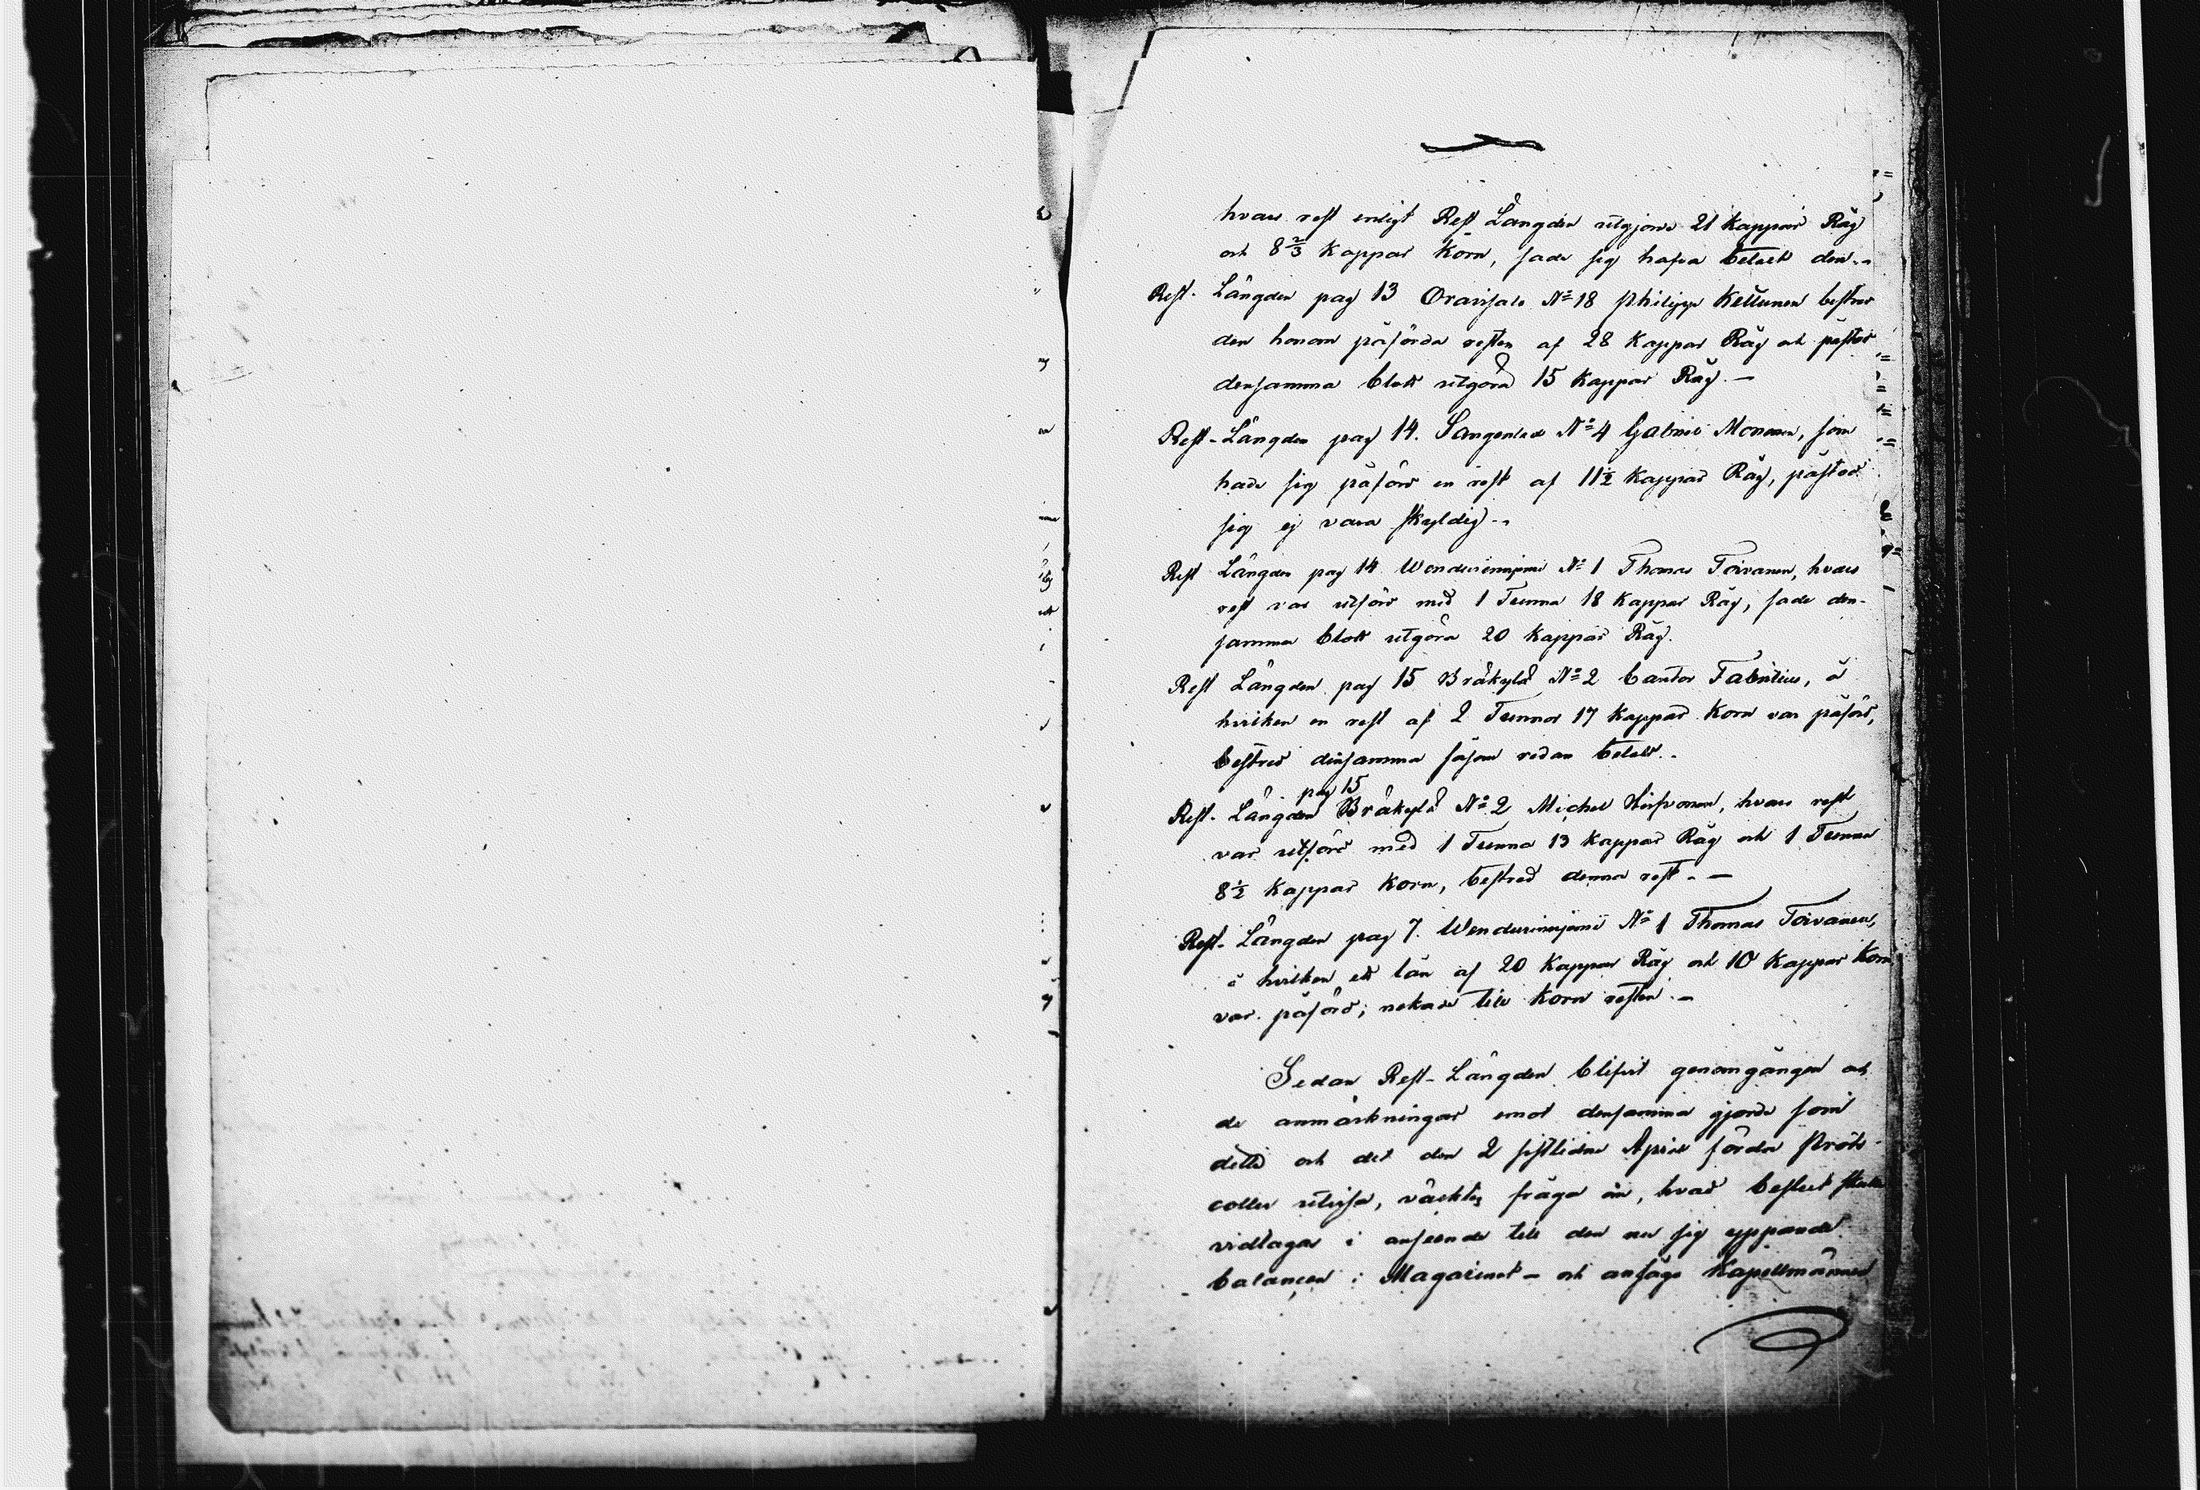 hvars rest enligt Rest Längden utgjorde 21 Kappar Råg
och 8 2/3 Kappar Korn, sade sig hafva betalt den..
Rest. Längden pag 13 Oravisalo No 18 Philipp Kettunen bestred
den honom påförda resten af 28 Kappar Råg och påstod
densamma blott utgöra 15 Kappar Råg. —
Rest-Längden pag 14. No 4 Gabriel Mononen, som
hade sig påförd en rest af 11½ Kappar Råg, påstod
sig ej vara skyldig..
Rest Längden pag 14 No 1 Thomas Toivanen, hvars
rest var utförd med 1 Tunna 18 Kappar Råg, sade den-
samma blott utgöra 20 Kappar Råg.
Rest Längden pag 15 Bråkylä No 2 Cantor Fabritius, å
hvilken en rest af 2 Tunnor 17 Kappar Korn var påförd,
bestred densamma såsom redan betalt..
pag 15
Rest. Längden Bråkylä No 2 Michel Hirvonen, hvars rest
var utförd med 1 Tunna 13 Kappar Råg och 1 Tunna
8½ Kappar Korn, bestred denna rest. —
Rest-Längden pag 7. No 1 Thomas Toivanen,
å hvilken ett lån af 20 Kappar Råg och 10 Kappar Korn
var påförd; nekade till Korn resten. —
Sedan Rest-Längden blifvit genomgången och
de anmärkningar emot densamma gjorde som
detta och det den 2 sistlidne April förda Proto-
coller utvisa, väcktes fråga om, hvad beslut skulle
vidtagas i anseende till den nu sig yppande
balancen i Magasinet — och ansågo Kapellmännen